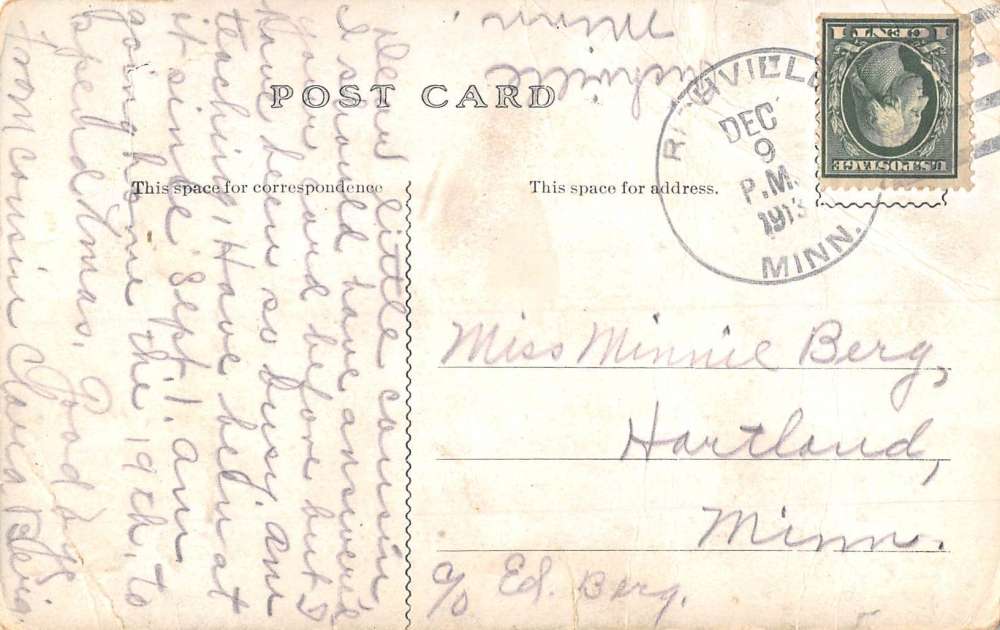 Minn.
POST CARD
This space for correspondence
This space for address.
Dear little cousin,
I should have answered
your card before but I
have been so busy. Am
teaching, Have been at
it since Sept 1. Am
going home the 19th. to
spend Xmas. Good by
from cousin Clara Berg.
RICHVILLE
DEC
9
P.M.
1913
MINN.
U.S. POSTAGE
1 CENT 1
Miss Minnie Berg,
Hartland,
Minn.
c/o Ed. Berg.